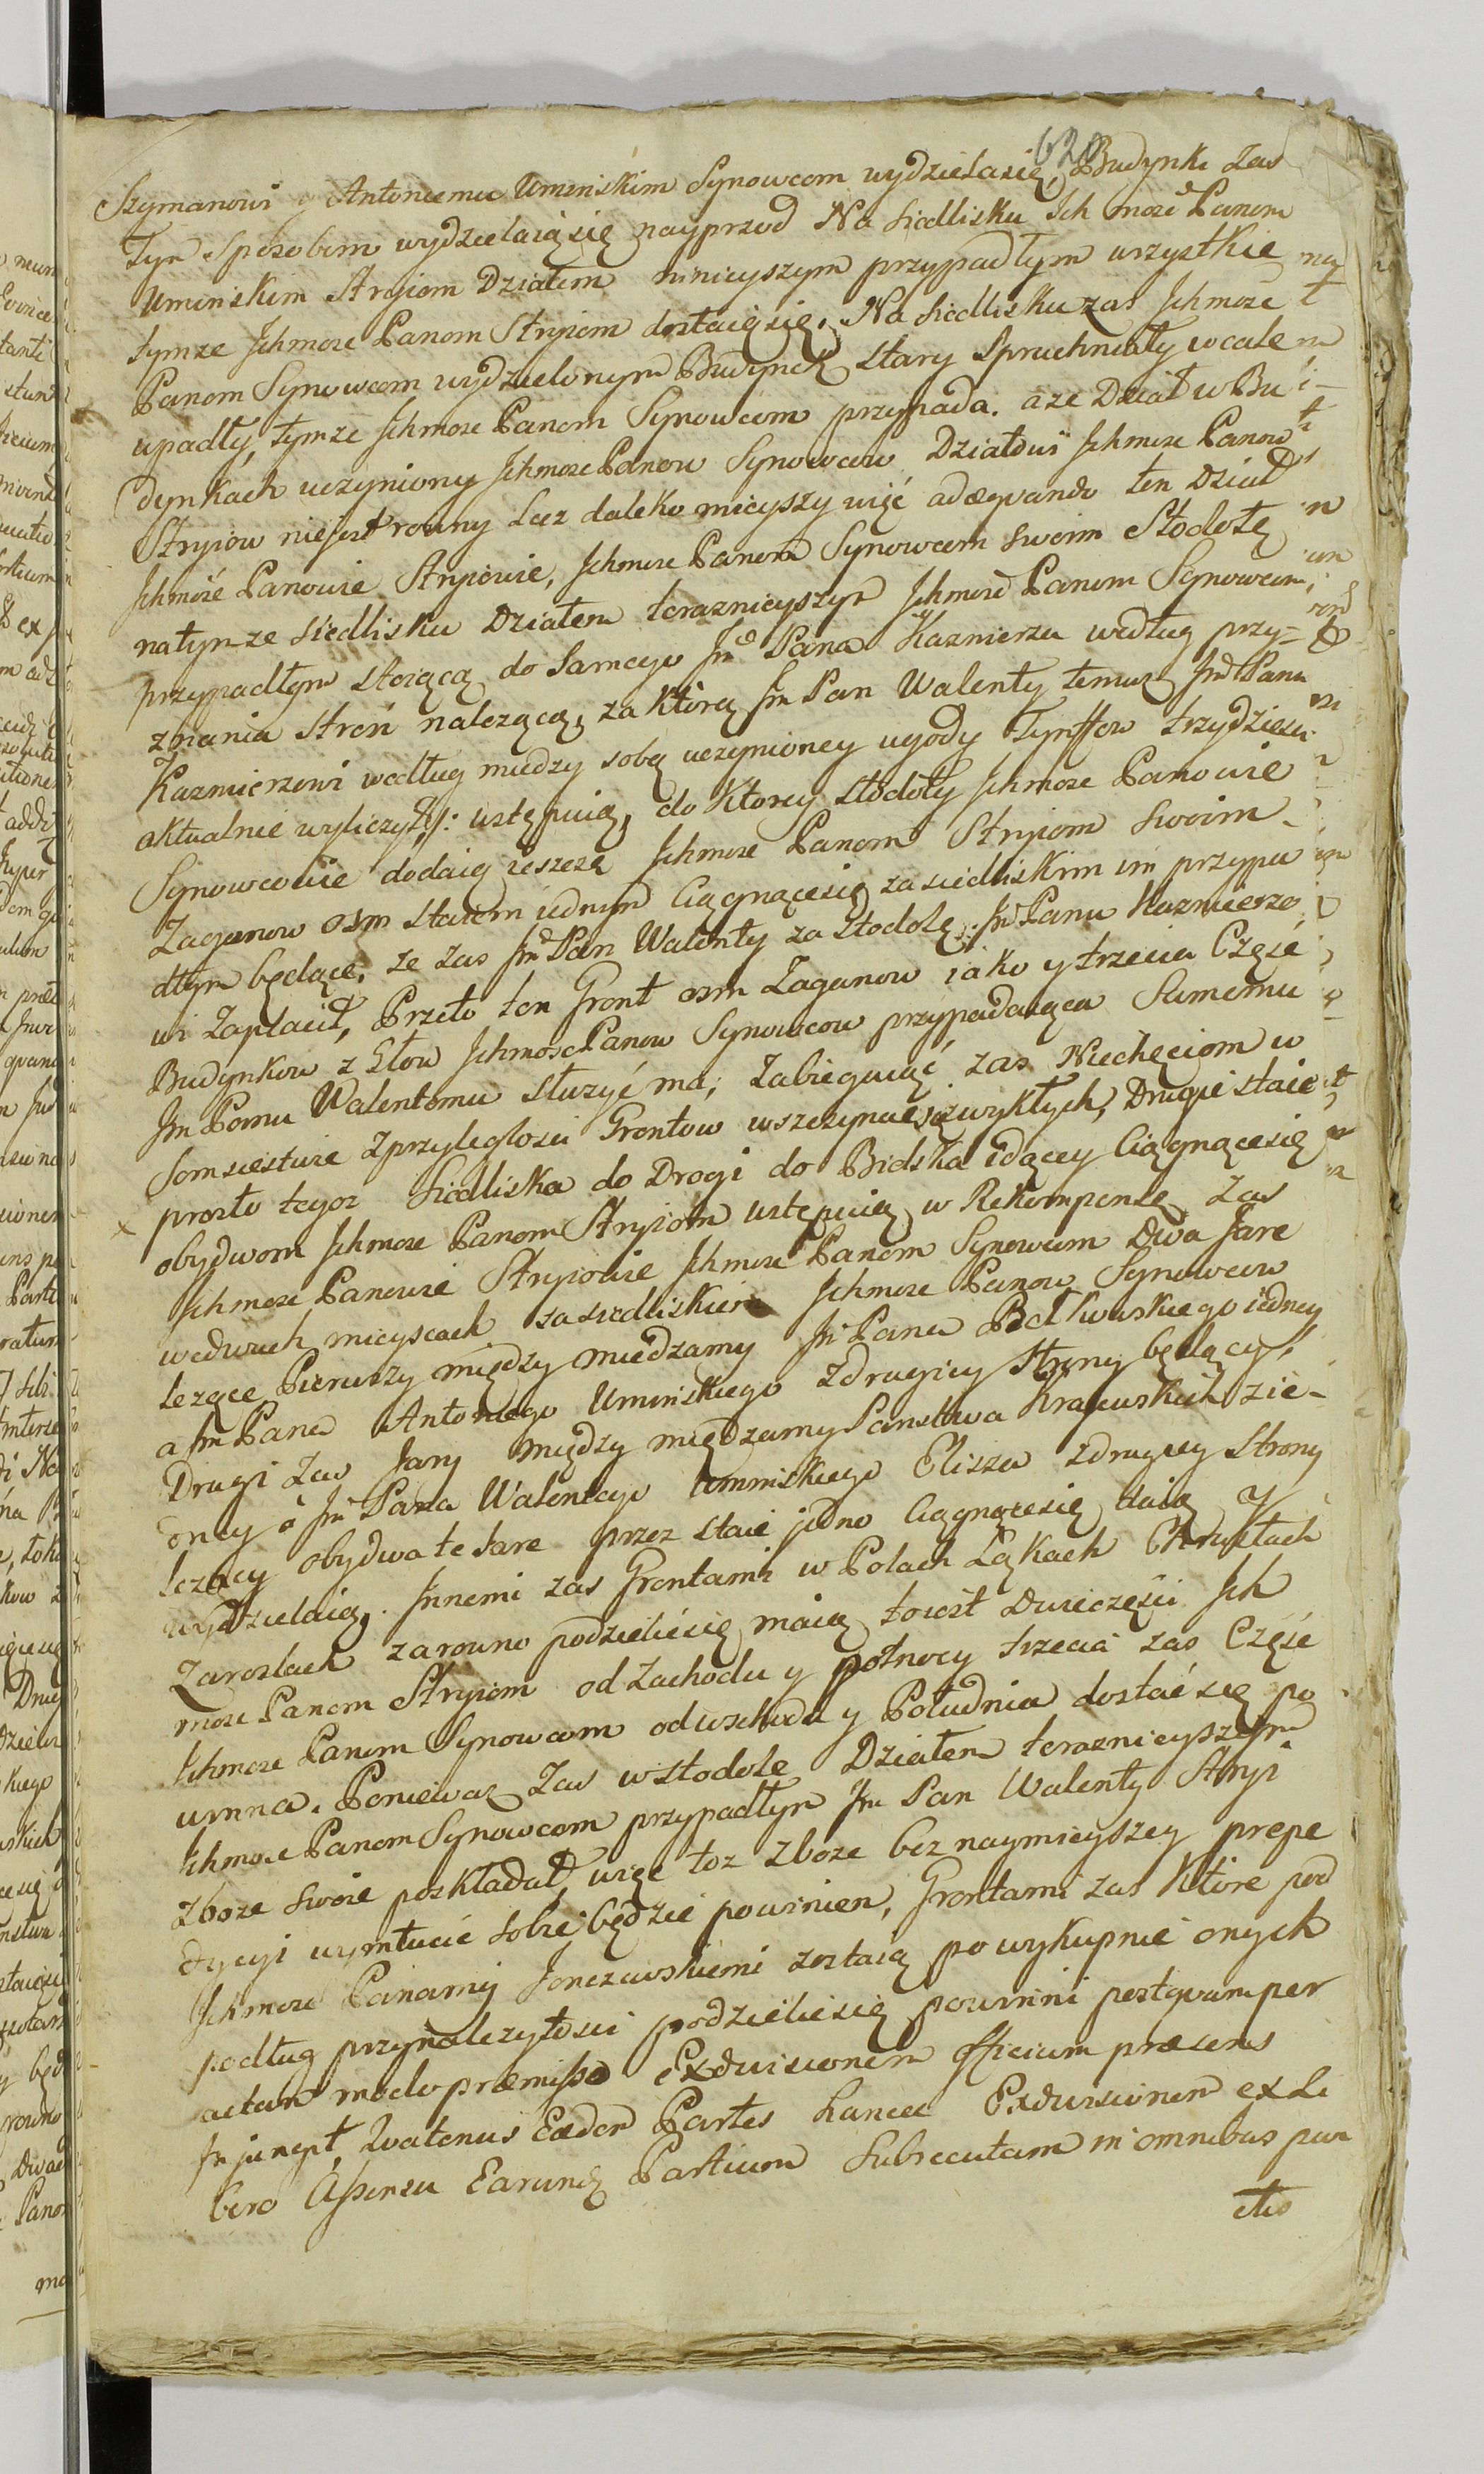 620
Szymanowi y Antoniemu Uminskim Synowcom wydzielasię, Budynki zas
Tym Sposobem wydzielaią się nayprzod Na siedlisku Ich mośc Panom
Uminskim Stryiom Działem ninieyszym przypadłym wszystkie
tymze Ichmosc Panom Stryiom dostaią się, Na siedlisku zas Ichmośc
Panom Synowcom wydzielonym Budynek stary Spruchniały wcale
upadły, tymze Ichmosc Panom Synowcom przypada. a ze Dział w Bu
dynkach uczyniony Ichmosc Panow Synowcow Działowi Ichmosc Panow
Stryiow nie jest rowny Lecz daleko mieyszy więc adæquando ten Dział
Ichmośc Panowie Stryiowie, Ichmosc Panom Synowcom swoim Stodołę
natymze siedlisku Działem teraznieyszym Ichmosc Panom Synowcom
przypadłym stoiącą do Samego Jmć Pana Kazmierza według przy-
znania stron nalezącą, za ktorą Jm Pan Walenty temuz Jmć Panu
Kazmierzowi według miedzy sobą uczynioney ugody Tynffow trzydziesci
aktualnie wyliczył: ustępuią, do Ktorey stodoły Ichmosc Panowie
Synowcowie dodaią ieszcze Ichmosc Panom Stryiom Swoim
Zagonow osm staiem iednym Ciągnącesię za siedliskim im przypa
dłym będące, ze zas Jmć Pan Walenty za stodołę Jmć Panu Kazmierzo
wi Zapłacił, Przeto ten Gront osm Zagonow iako y trzecia Częsć
Budynkow z Słow Ichmosc Panow Synowcow przypadaiąca Samemu
Jm Panu Walentemu słuzyć ma, Zabiegaiąć zas Niechęciom w
Somsiestwie z przyległosci Grontow wszczynac się zwykłych, Drugie staie
prosto tegoz Siedliska do Drogi do Bielska idącey Ciągnącesię
obydwom Ichmosc Panom Stryiom ustępuią w Rekompensę zas
Ichmosc Panowie Stryiowie Ichmosc Panom Synowcom Dwa Jare
wedwuch mieyscach za siedliskiem Ichmosc Panow Synowcow
lezące Pierwszy między miedzamy Jm Pana iedney
a Jm Pana Antoniego Uminskiego z drugiey Strony będący,
Drugi zas Jary między międzamy Panstwa Krajewskich zie-
dney a Jm Pana Walentego Uminskiego Elisza z drugiey Strony
lezący obydwa te Jare przez staie jedno Ciągnącesię daią y
wydzielaią. Innemi zas Grontami w Polach Łąkach Chrustach
Zaroslach zarowno podzielićsię maią toiest Dwie części Ich
mosc Panom Stryiom od zachodu y połnocy trzecia zas Częśc
Ichmosc Panom Synowcom od wschodu y Południa dostać się po
winna. Poniewaz zas w stodole Działem teraznieyszym
Ichmosc Panom Synowcom przypadłym Jm Pan Walenty Stryi
zboze swoie poskładał więc toz zboze bez naymieyszey prepe
dycyi wymłucić sobie będzie powinien, Grontami zas Które pod
Ichmosc Panamy Jonczewskiemi zostaią po wykupnie onych
podług przynalezytosci podzielicsię powinni postquam per
actam modo præmisso Exdivisionem Officium præsens
Injunxit, Quatenus Eædem Partes hancce Exdivisionem ex li
bero Assensu Earundem Partium Subsecutam in omnibus pun
ctis